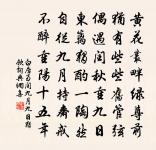 黃花叢畔綠尊前
猶有些些舊管弦
偶遇閏秋重九日
東籬獨酌一陶然
自從九月持齋戒
不醉重陽十五年
白居易閏九月九日獨
飲